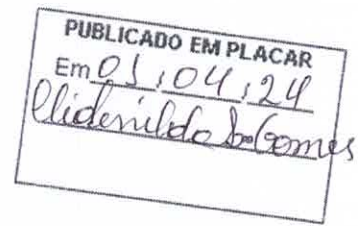 PUBLICADO EM PLACAR
Em 01, 04, 24
Clidenildo S. Gomes